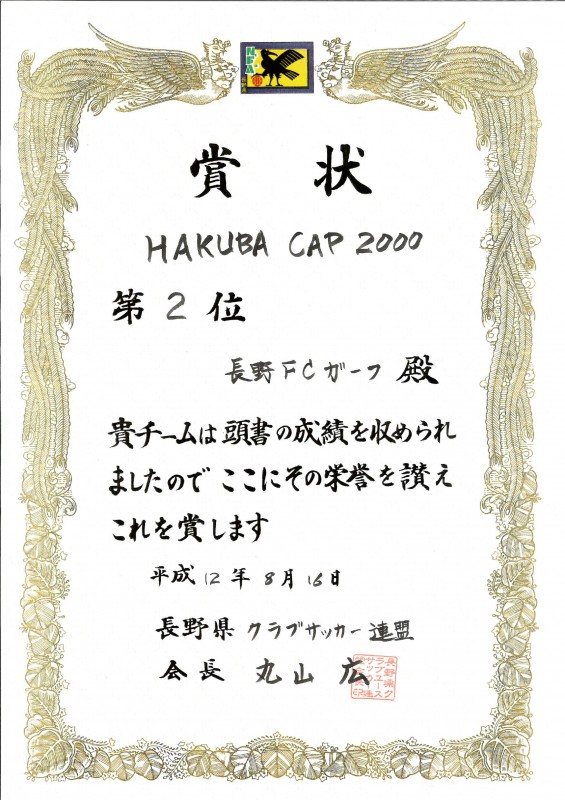 NFA
賞状
HAKUBA CAP 2000
第2位
長野FCガーフ 殿
貴チームは頭書の成績を収められ
ましたので ここにその栄誉を讃え
これを賞します
平成12年8月16日
長野県 クラブサッカー連盟
会長 丸山 広